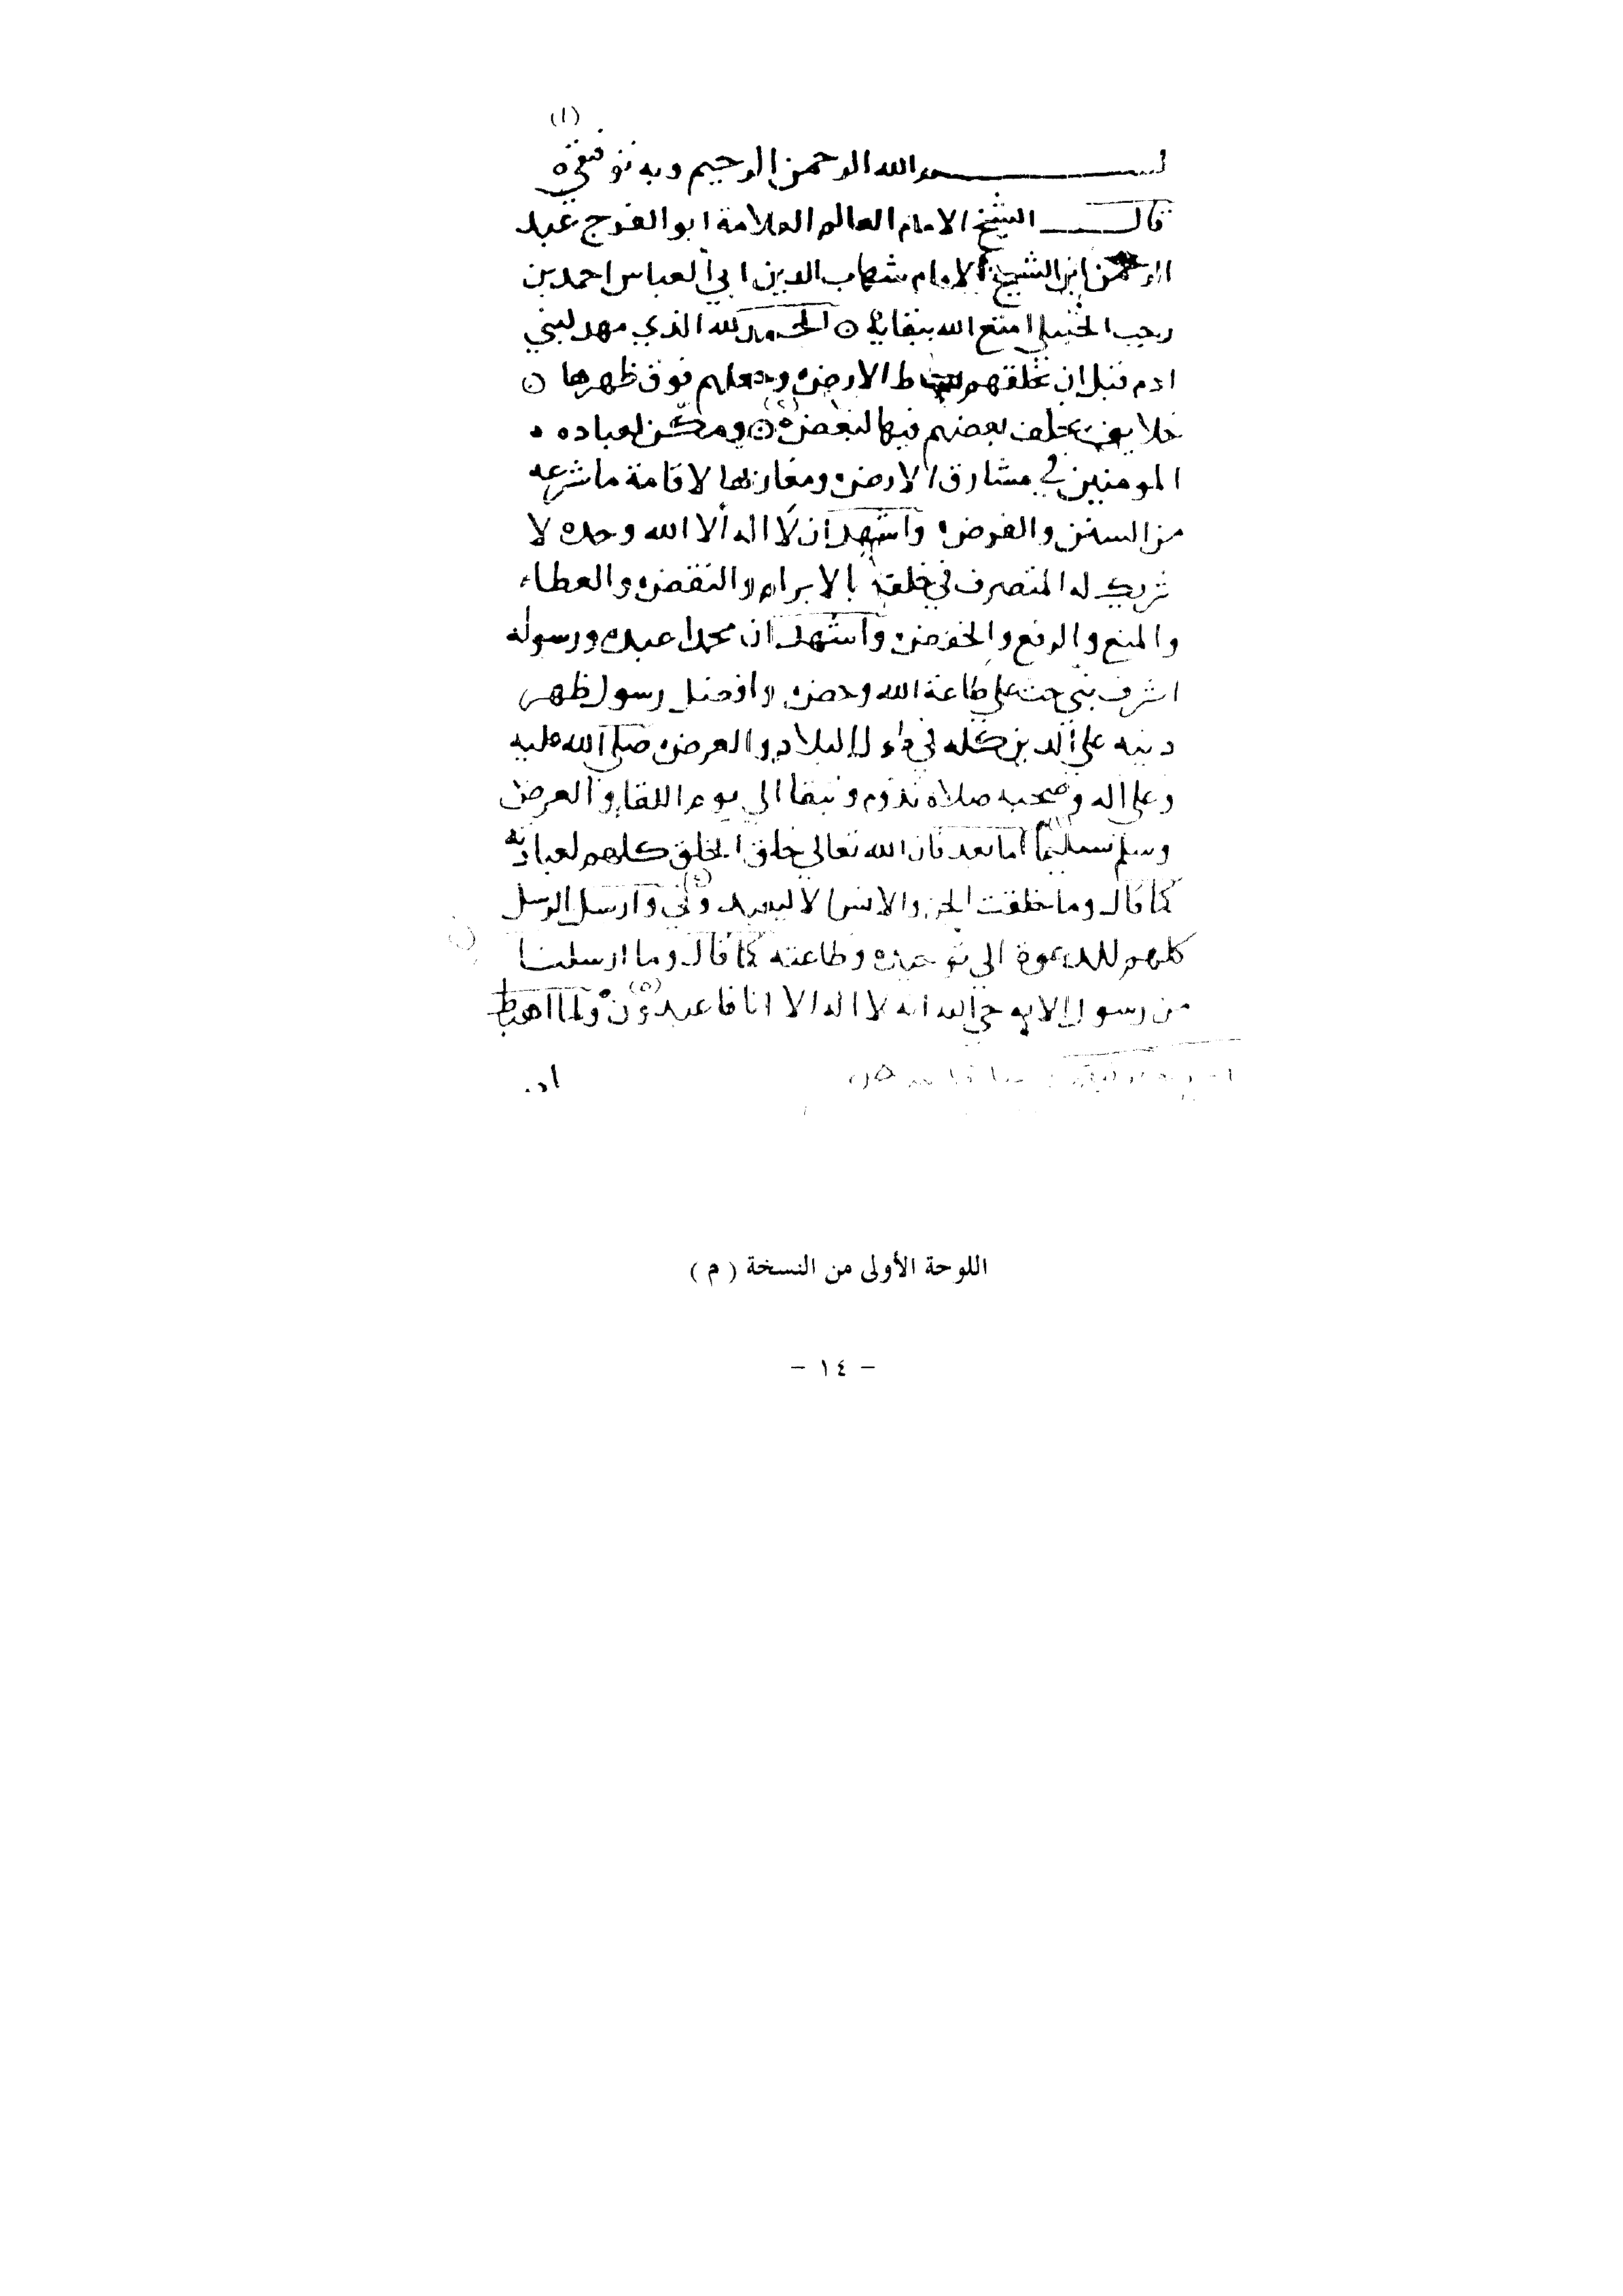 (١)
بسم الله الرحمن الرحيم وبه توفيقي
قال الشيخ الامام العالم العلامة ابو الفرج عبد
الرحمن ابن الشيخ الامام شهاب الدين ابي العباس احمد بن
رجب الحنبلي امتع الله ببقايه الحمد لله الذي مهد لبني
ادم قبل ان يخلقهم بساط الارض وجعلهم فوق ظهرها
خلايف يخلف بعضهم فيها لبعض (٢) ومكّن لعباده
المومنين في مشارق الارض ومغاربها لاقامة ما شرعه
من السنن والفرض واشهد ان لا اله الا الله وحده لا
شريك له المتصرف في خلقه بالابرام والنقض والعطاء
والمنع والرفع والخفض واشهد ان محمدا عبده ورسوله
اشرف نبي حث على طاعة الله وحض وافضل رسول ظهر
دينه على الدين كله في البلاد والعرض صلى الله عليه
وعلى اله وصحبه صلاة تدوم وتبقا الي يوم اللقا والعرض
وسلم تسليما اما بعد فان الله تعالي خلق الخلق كلهم لعبادته
كما قال وما خلقت الجن والانس الا ليعبدون وارسل الرسل
كلهم للدعوة الي توحيده وطاعته كما قال وما ارسلنا
من رسول الا يوحي اليه انه لا اله الا انا فاعبدون (٥) ولما اهبط
اد
اللوحة الأولى من النسخة ( م )
- ١٤ -